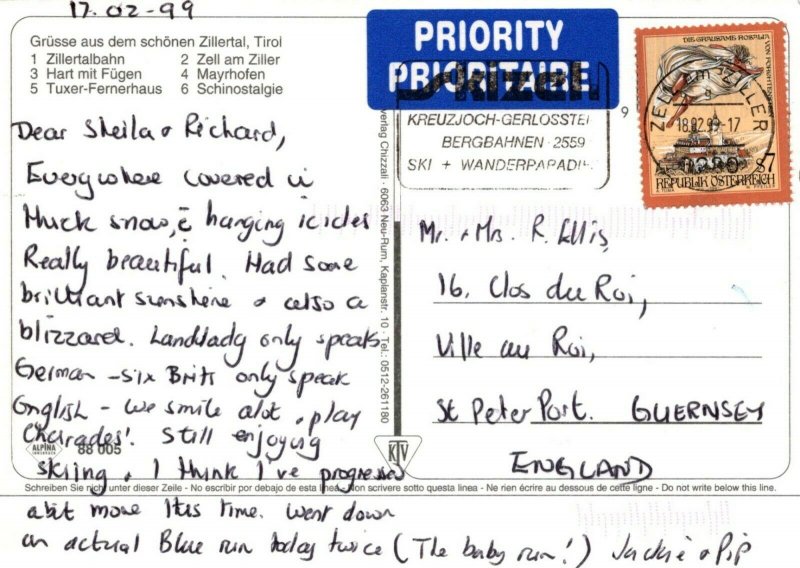 17.02-99
Grüsse aus dem schönen Zillertal, Tirol
1 Zillertalbahn 2 Zell am Ziller
3 Hart mit Fügen 4 Mayrhofen
5 Tuxer-Fernerhaus 6 Schinostalgie
PRIORITY
PRIORITAIRE
Skizell
KREUZJOCH-GERLOSSTEI
BERGBAHNEN 2559
SKI + WANDERPARADI
DIE GRAUSAME ROSALIA
ZELL am ZILLER
18.02.99-17
6280
S7
REPUBLIK ÖSTERREICH
Dear Sheila & Richard,
Everywhere covered in
thick snow, c̄ hanging icicles
Really beautiful. Had some
brilliant sunshine & also a
blizzard. Landlady only speaks
German - six Brits only speak
English - we smile alot & play
'Charades'. Still enjoying
skiing & I think I've progressed
abit more this time. Went down
an actual Blue run today twice (The baby run!) Jackie & Pip
verlag Chizzali · 6063 Neu-Rum, Kaplanstr. 10 · Tel.: 0512-261180
Mr. & Mrs. R. Ellis,
16, Clos du Roi,
Ville au Roi,
St Peter Port. GUERNSEY
ENGLAND
ALPINA
88 005
KTV
Schreiben Sie nicht unter dieser Zeile - No escribir por debajo de esta linea - Non scrivere sotto questa linea - Ne rien écrire au dessous de cette ligne - Do not write below this line.